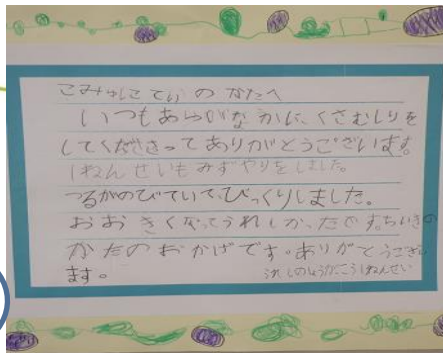 こみゅにてぃのかたへ
いつもあめがなかに、くさむしりを
してくださってありがとうございます。
1ねんせいもみずやりをしました。
つるがのびていて、びっくりしました。
おおきくなってうれしかったです。ちいきの
かたのおかげです。ありがとうござい
ます。
うれしのしょうがっこう1ねんせい